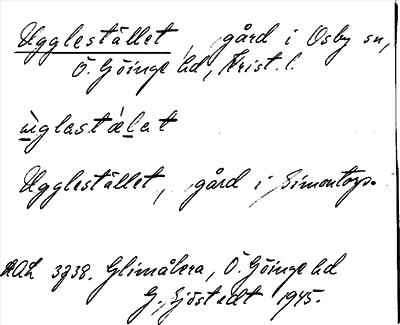 Ugglestället, gård i Osby sn,
Ö. Göinge hd, Krist. l.
ùglastǽlat
Ugglestället, gård i Simontorp.
3738. Glimåkra, Ö. Göinge hd
G. Sjöstedt 1945.